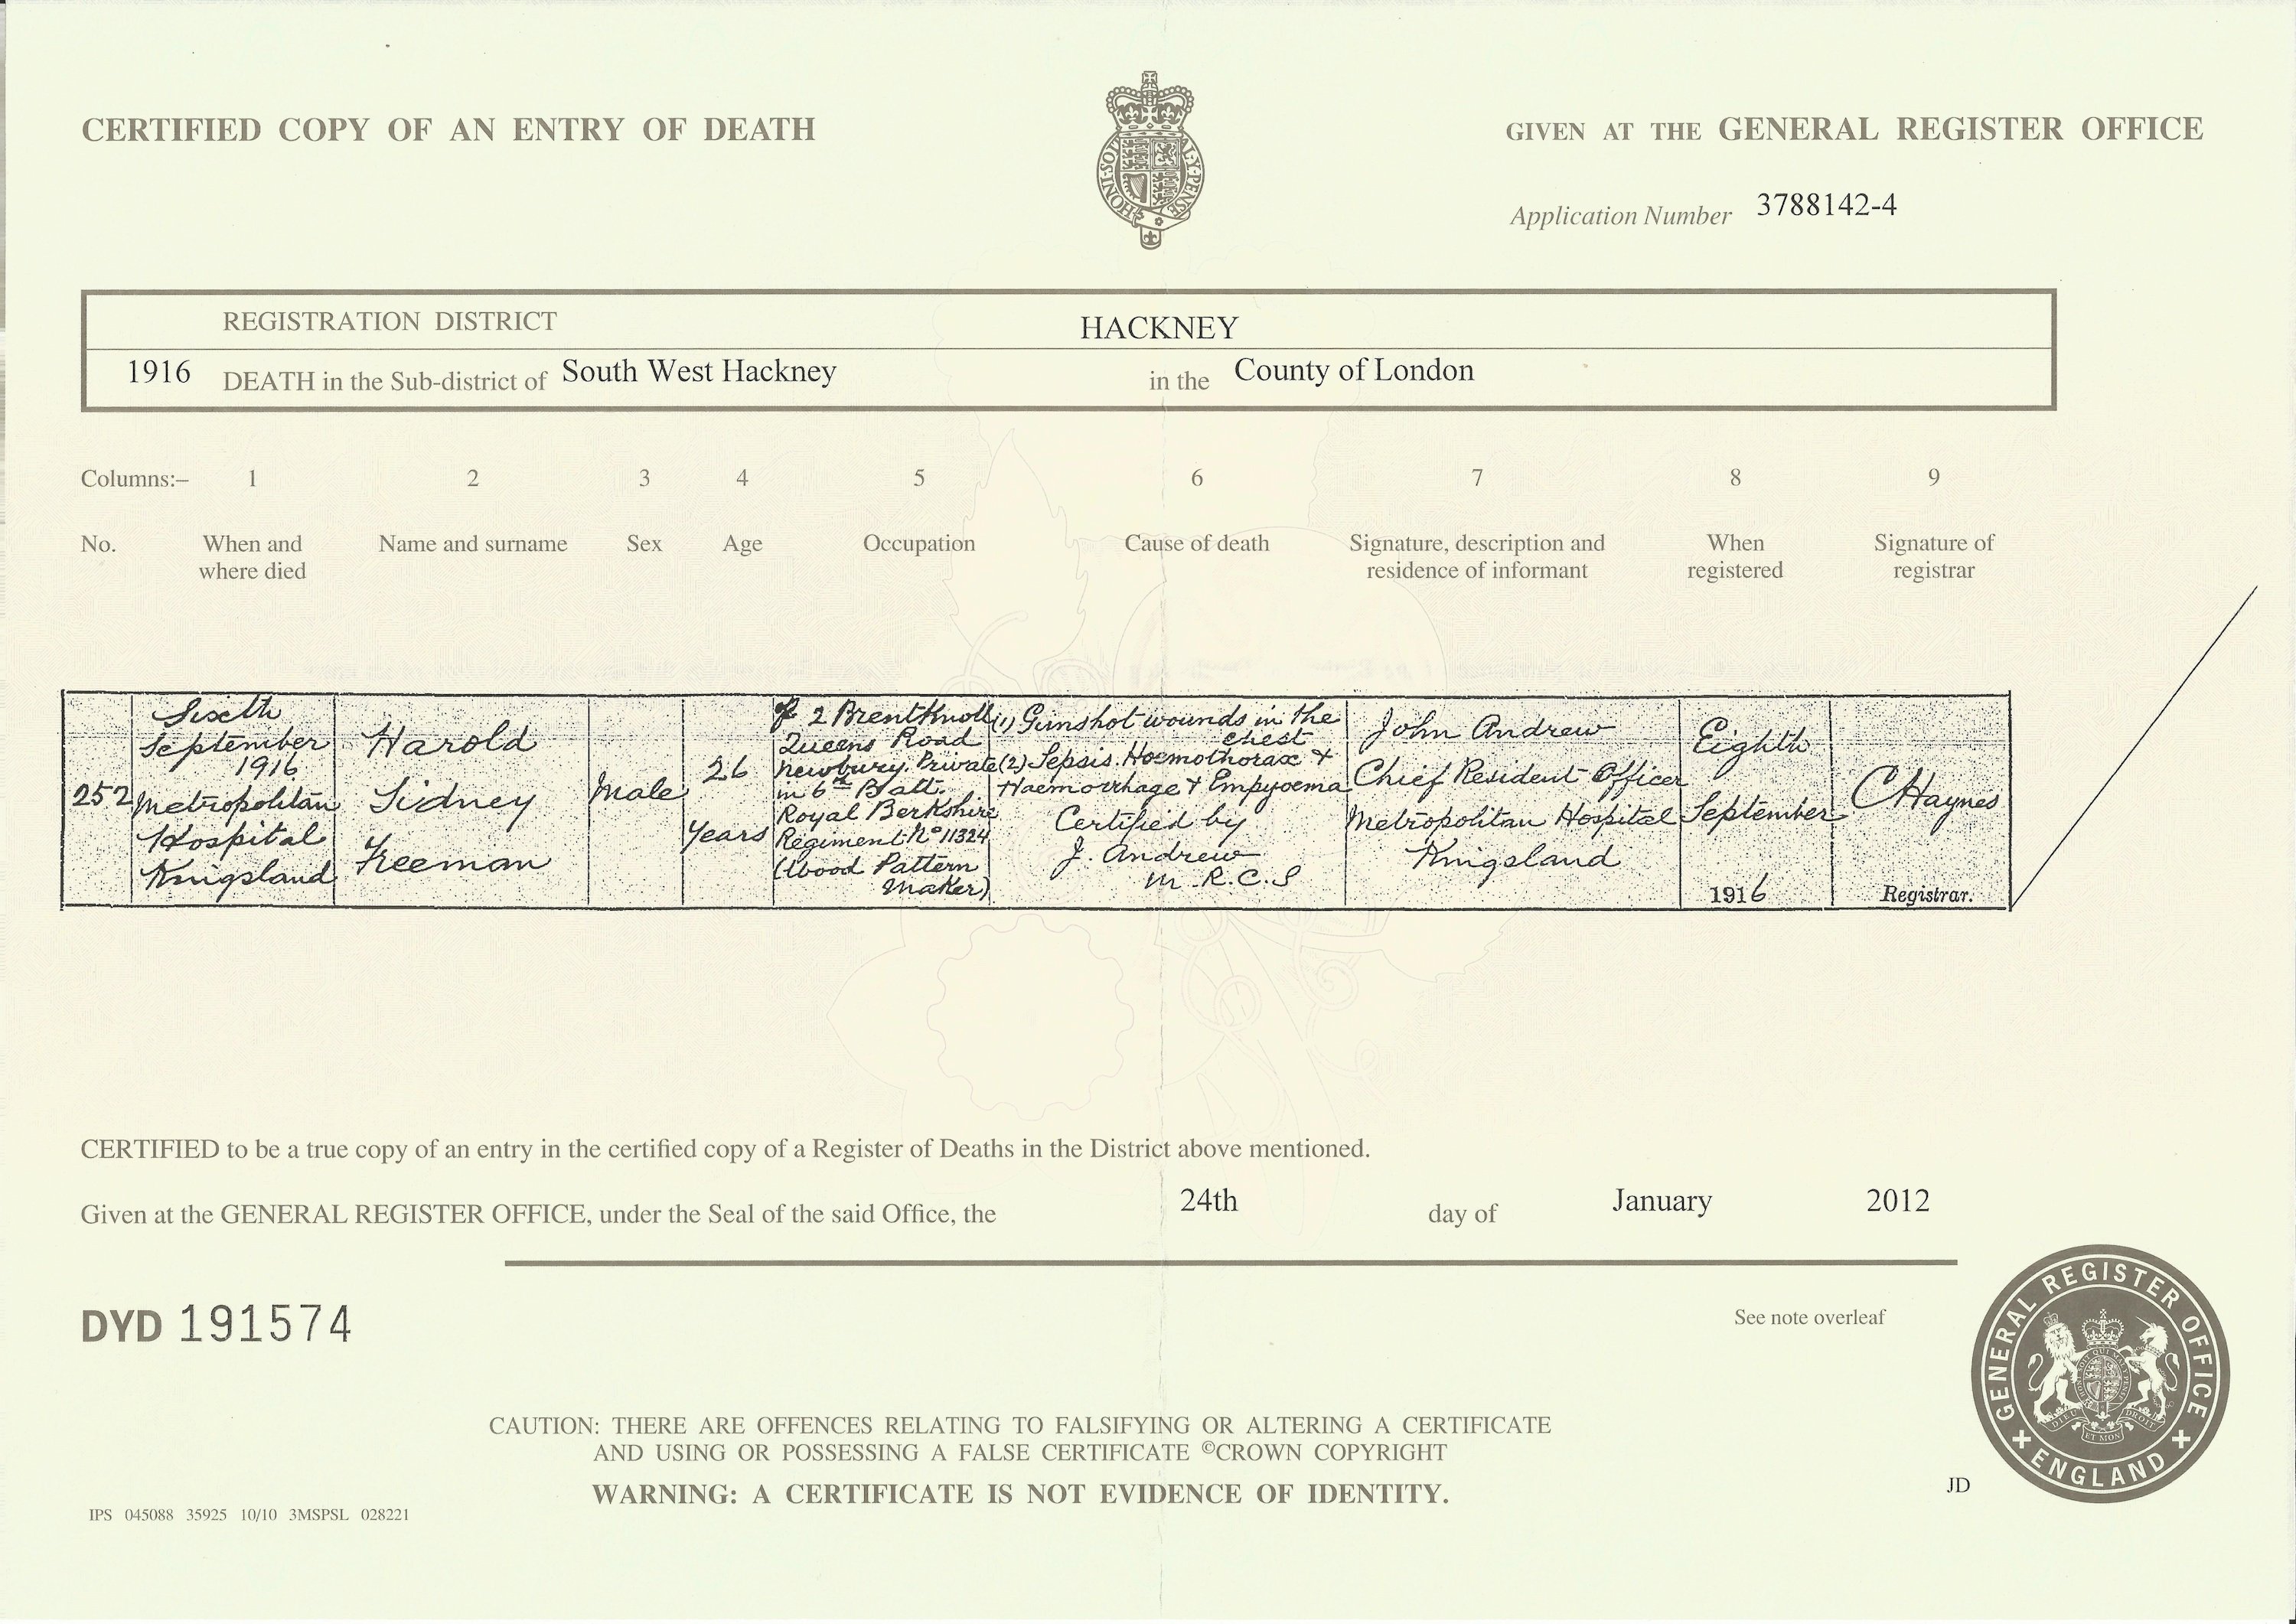 CERTIFIED COPY OF AN ENTRY OF DEATH
GIVEN AT THE GENERAL REGISTER OFFICE
Application Number 3788142-4
REGISTRATION DISTRICT HACKNEY
1916 DEATH in the Sub-district of South West Hackney in the County of London
Columns:– 1 2 3 4 5 6 7 8 9
No.
When and
where died
Name and surname
Sex
Age
Occupation
Cause of death
Signature, description and
residence of informant
When
registered
Signature of
registrar
252
Sixth
September
1916
Metropolitan
Hospital
Kingsland
Harold
Sidney
Freeman
Male
26
Years
of 2 Brentknoll
Queens Road
Newbury. Private
in 6th Batt.
Royal Berkshire
Regiment No 11324
(Wood Pattern
Maker)
(1) Gunshot wounds in the
chest
(2) Sepsis. Haemothorax +
Haemorrhage + Empyoema
Certified by
J. Andrew
M.R.C.S
John Andrew
Chief Resident Officer
Metropolitan Hospital
Kingsland
Eighth
September
1916
C Haynes
Registrar.
CERTIFIED to be a true copy of an entry in the certified copy of a Register of Deaths in the District above mentioned.
Given at the GENERAL REGISTER OFFICE, under the Seal of the said Office, the 24th day of January 2012
DYD 191574
See note overleaf
GENERAL REGISTER OFFICE
ENGLAND
CAUTION: THERE ARE OFFENCES RELATING TO FALSIFYING OR ALTERING A CERTIFICATE
AND USING OR POSSESSING A FALSE CERTIFICATE ©CROWN COPYRIGHT
WARNING: A CERTIFICATE IS NOT EVIDENCE OF IDENTITY.
JD
IPS 045088 35925 10/10 3MSPSL 028221